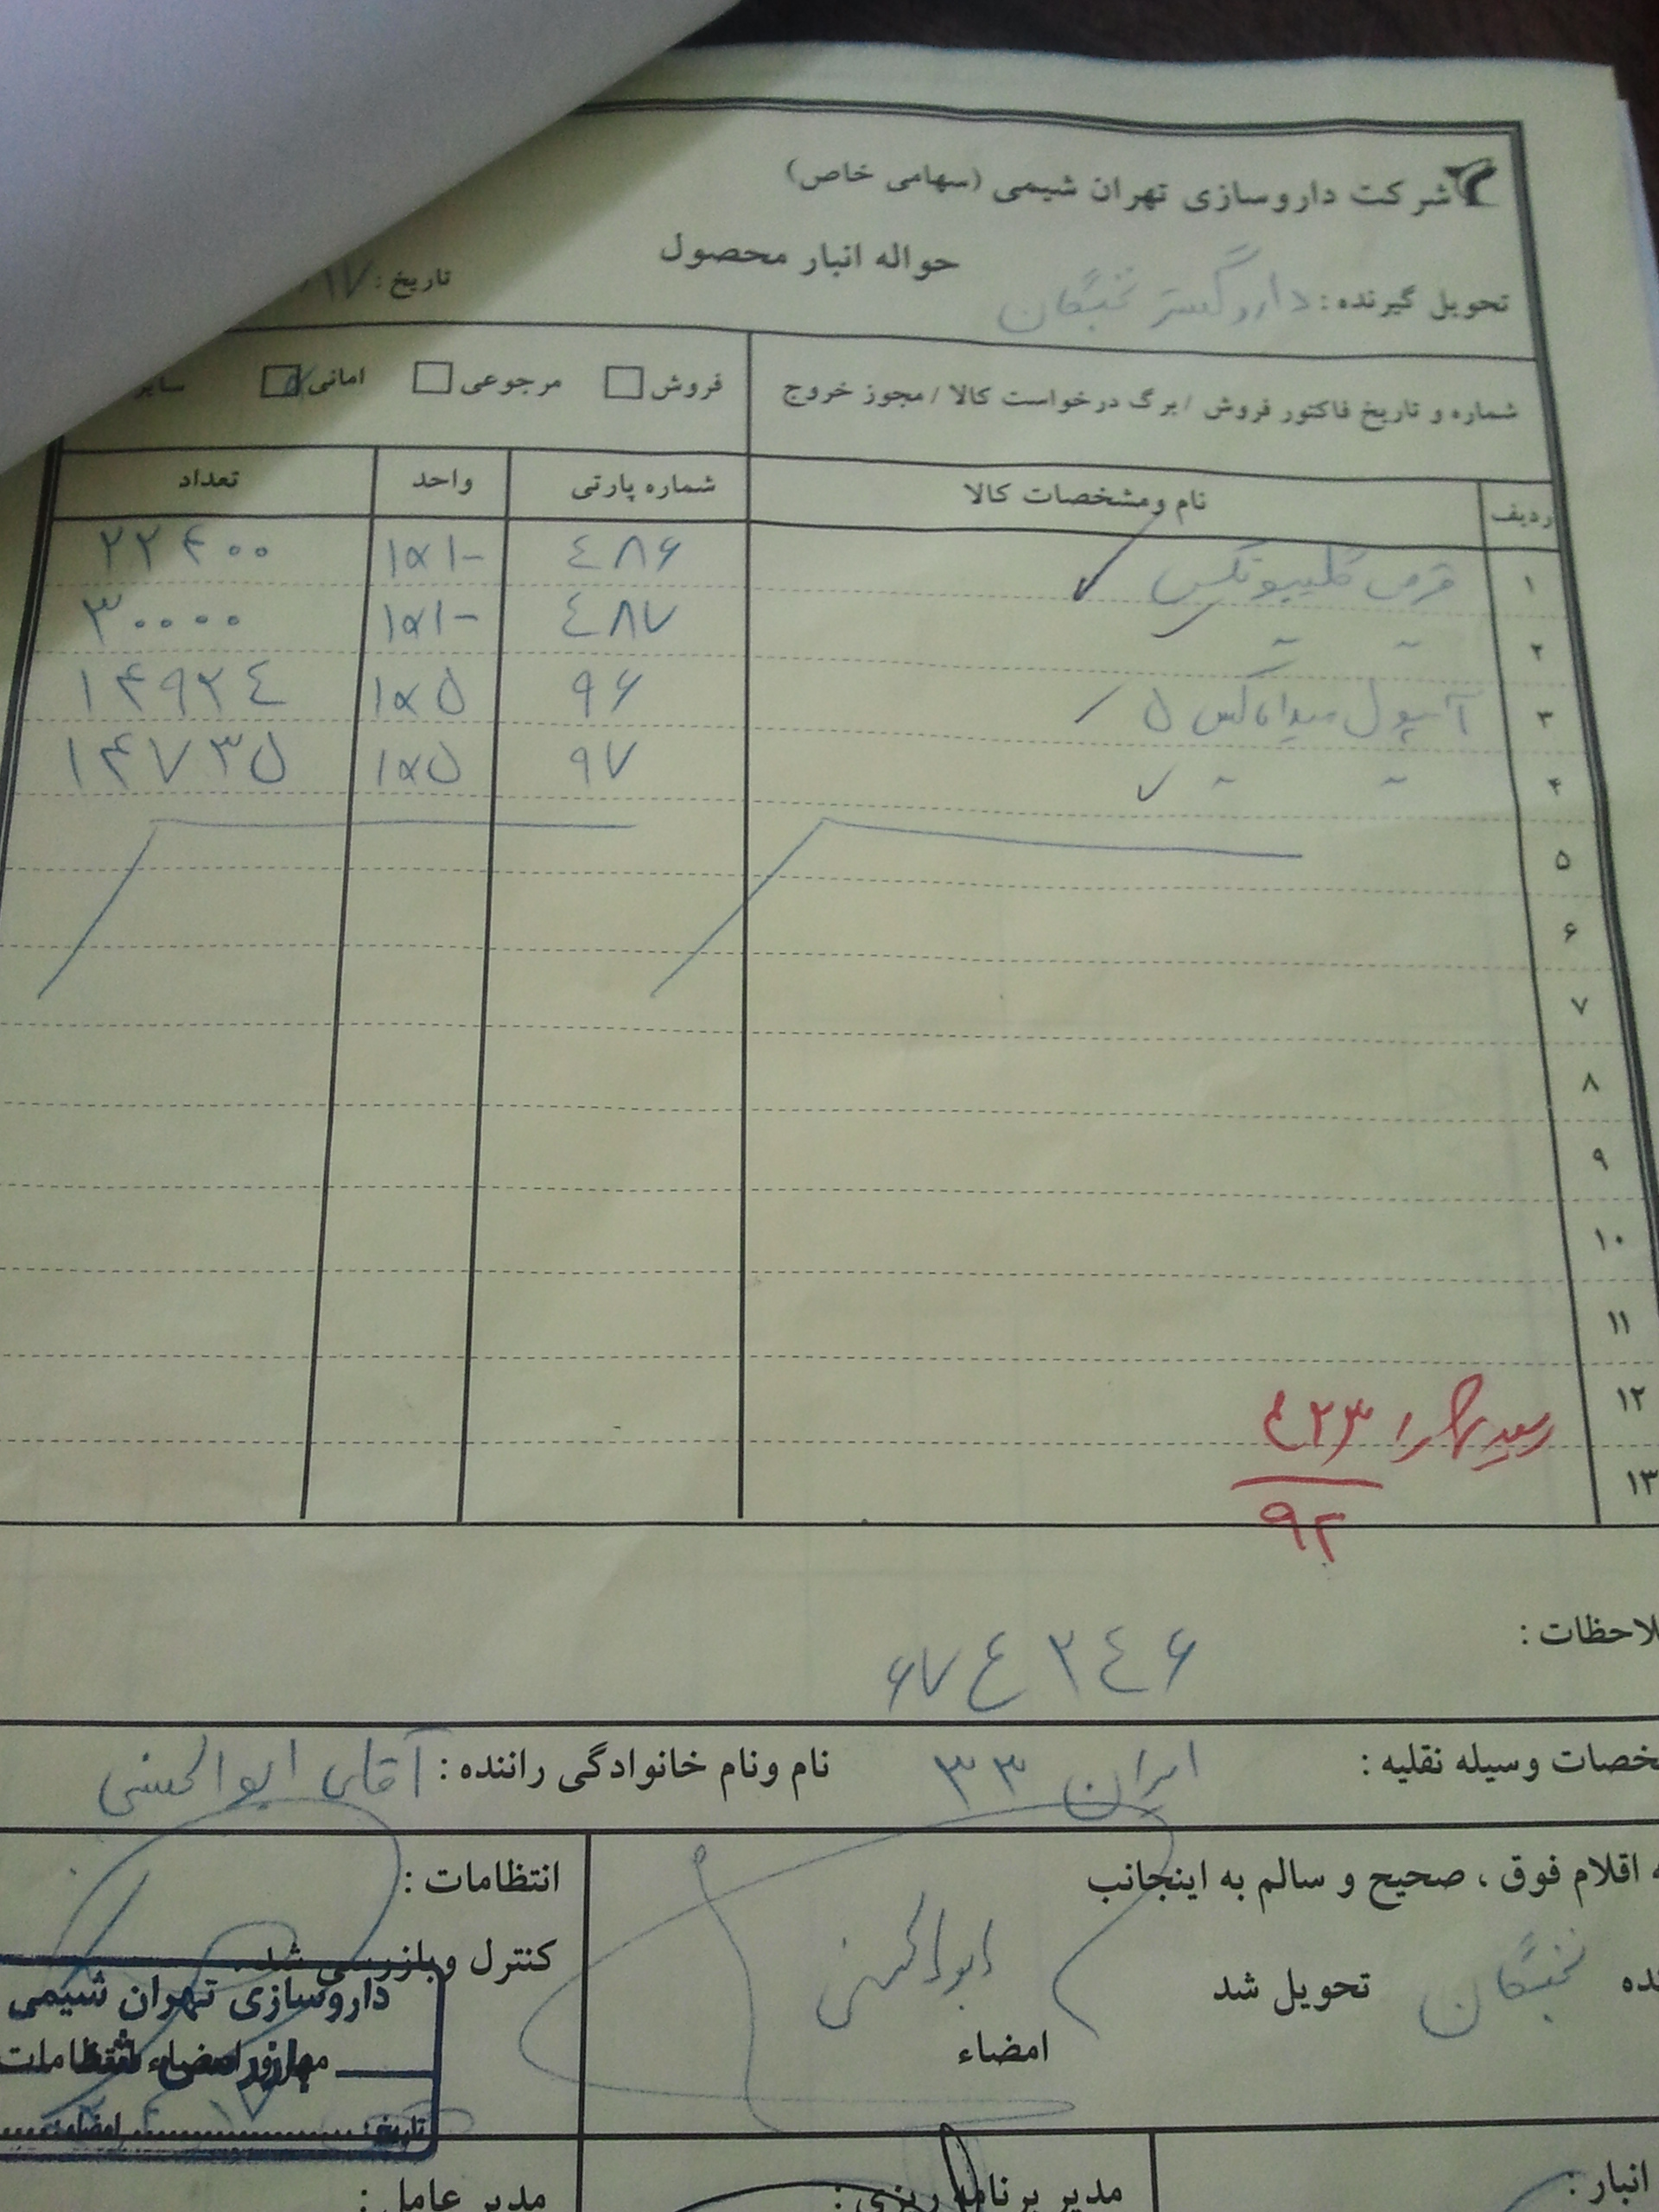 شرکت داروسازی تهران شیمی (سهامی خاص)
حواله انبار محصول
تحویل گیرنده : داروگستر نخبگان
تاریخ :
شماره و تاریخ فاکتور فروش / برگ درخواست کالا / مجوز خروج
فروش مرجوعی امانی سایر
ردیف نام ومشخصات کالا شماره پارتی واحد تعداد
۱ قرص ۴۸۶ ۱×۱۰ ۲۲۴۰۰
۲ ۴۸۷ ۱×۱۰ ۳۰۰۰۰
۳ آمپول ۵ ۹۶ ۱×۵ ۱۴۹۲۴
۴ ۹۷ ۱×۵ ۱۴۷۳۵
۵
۶
۷
۸
۹
۱۰
۱۱
۱۲ رسید ۴۲۳
۱۳ ۹۲
لاحظات :
۶۷ ع ۲۴۶
خصات وسیله نقلیه : ایران ۳۳ نام ونام خانوادگی راننده : آقای ابوالحسنی
اقلام فوق ، صحیح و سالم به اینجانب
نده نخبگان تحویل شد
ابوالحسنی
امضاء
انتظامات :
کنترل و بازرسی شد .
داروسازی تهران شیمی
تاریخ: امضاء:
انبار :
مدیر برنامه ریزی :
مدیر عامل :